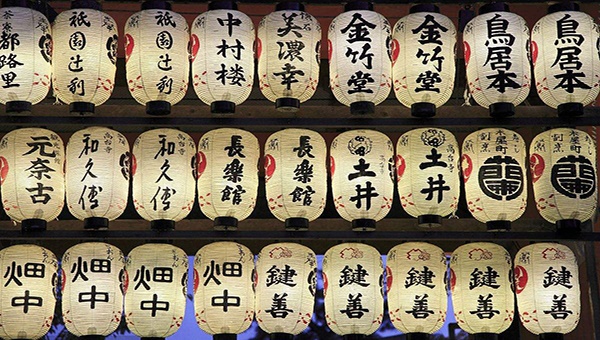 茶寮 都路里
祇園辻利
祇園辻利
中村楼
美濃幸
金竹堂
金竹堂
鳥居本
鳥居本
元奈古
高台寺 和久傳
高台寺 和久傳
長樂館
長樂館
高台寺 土井
高台寺 土井
畑中
畑中
畑中
畑中
鍵善
鍵善
鍵善
鍵善
鍵善